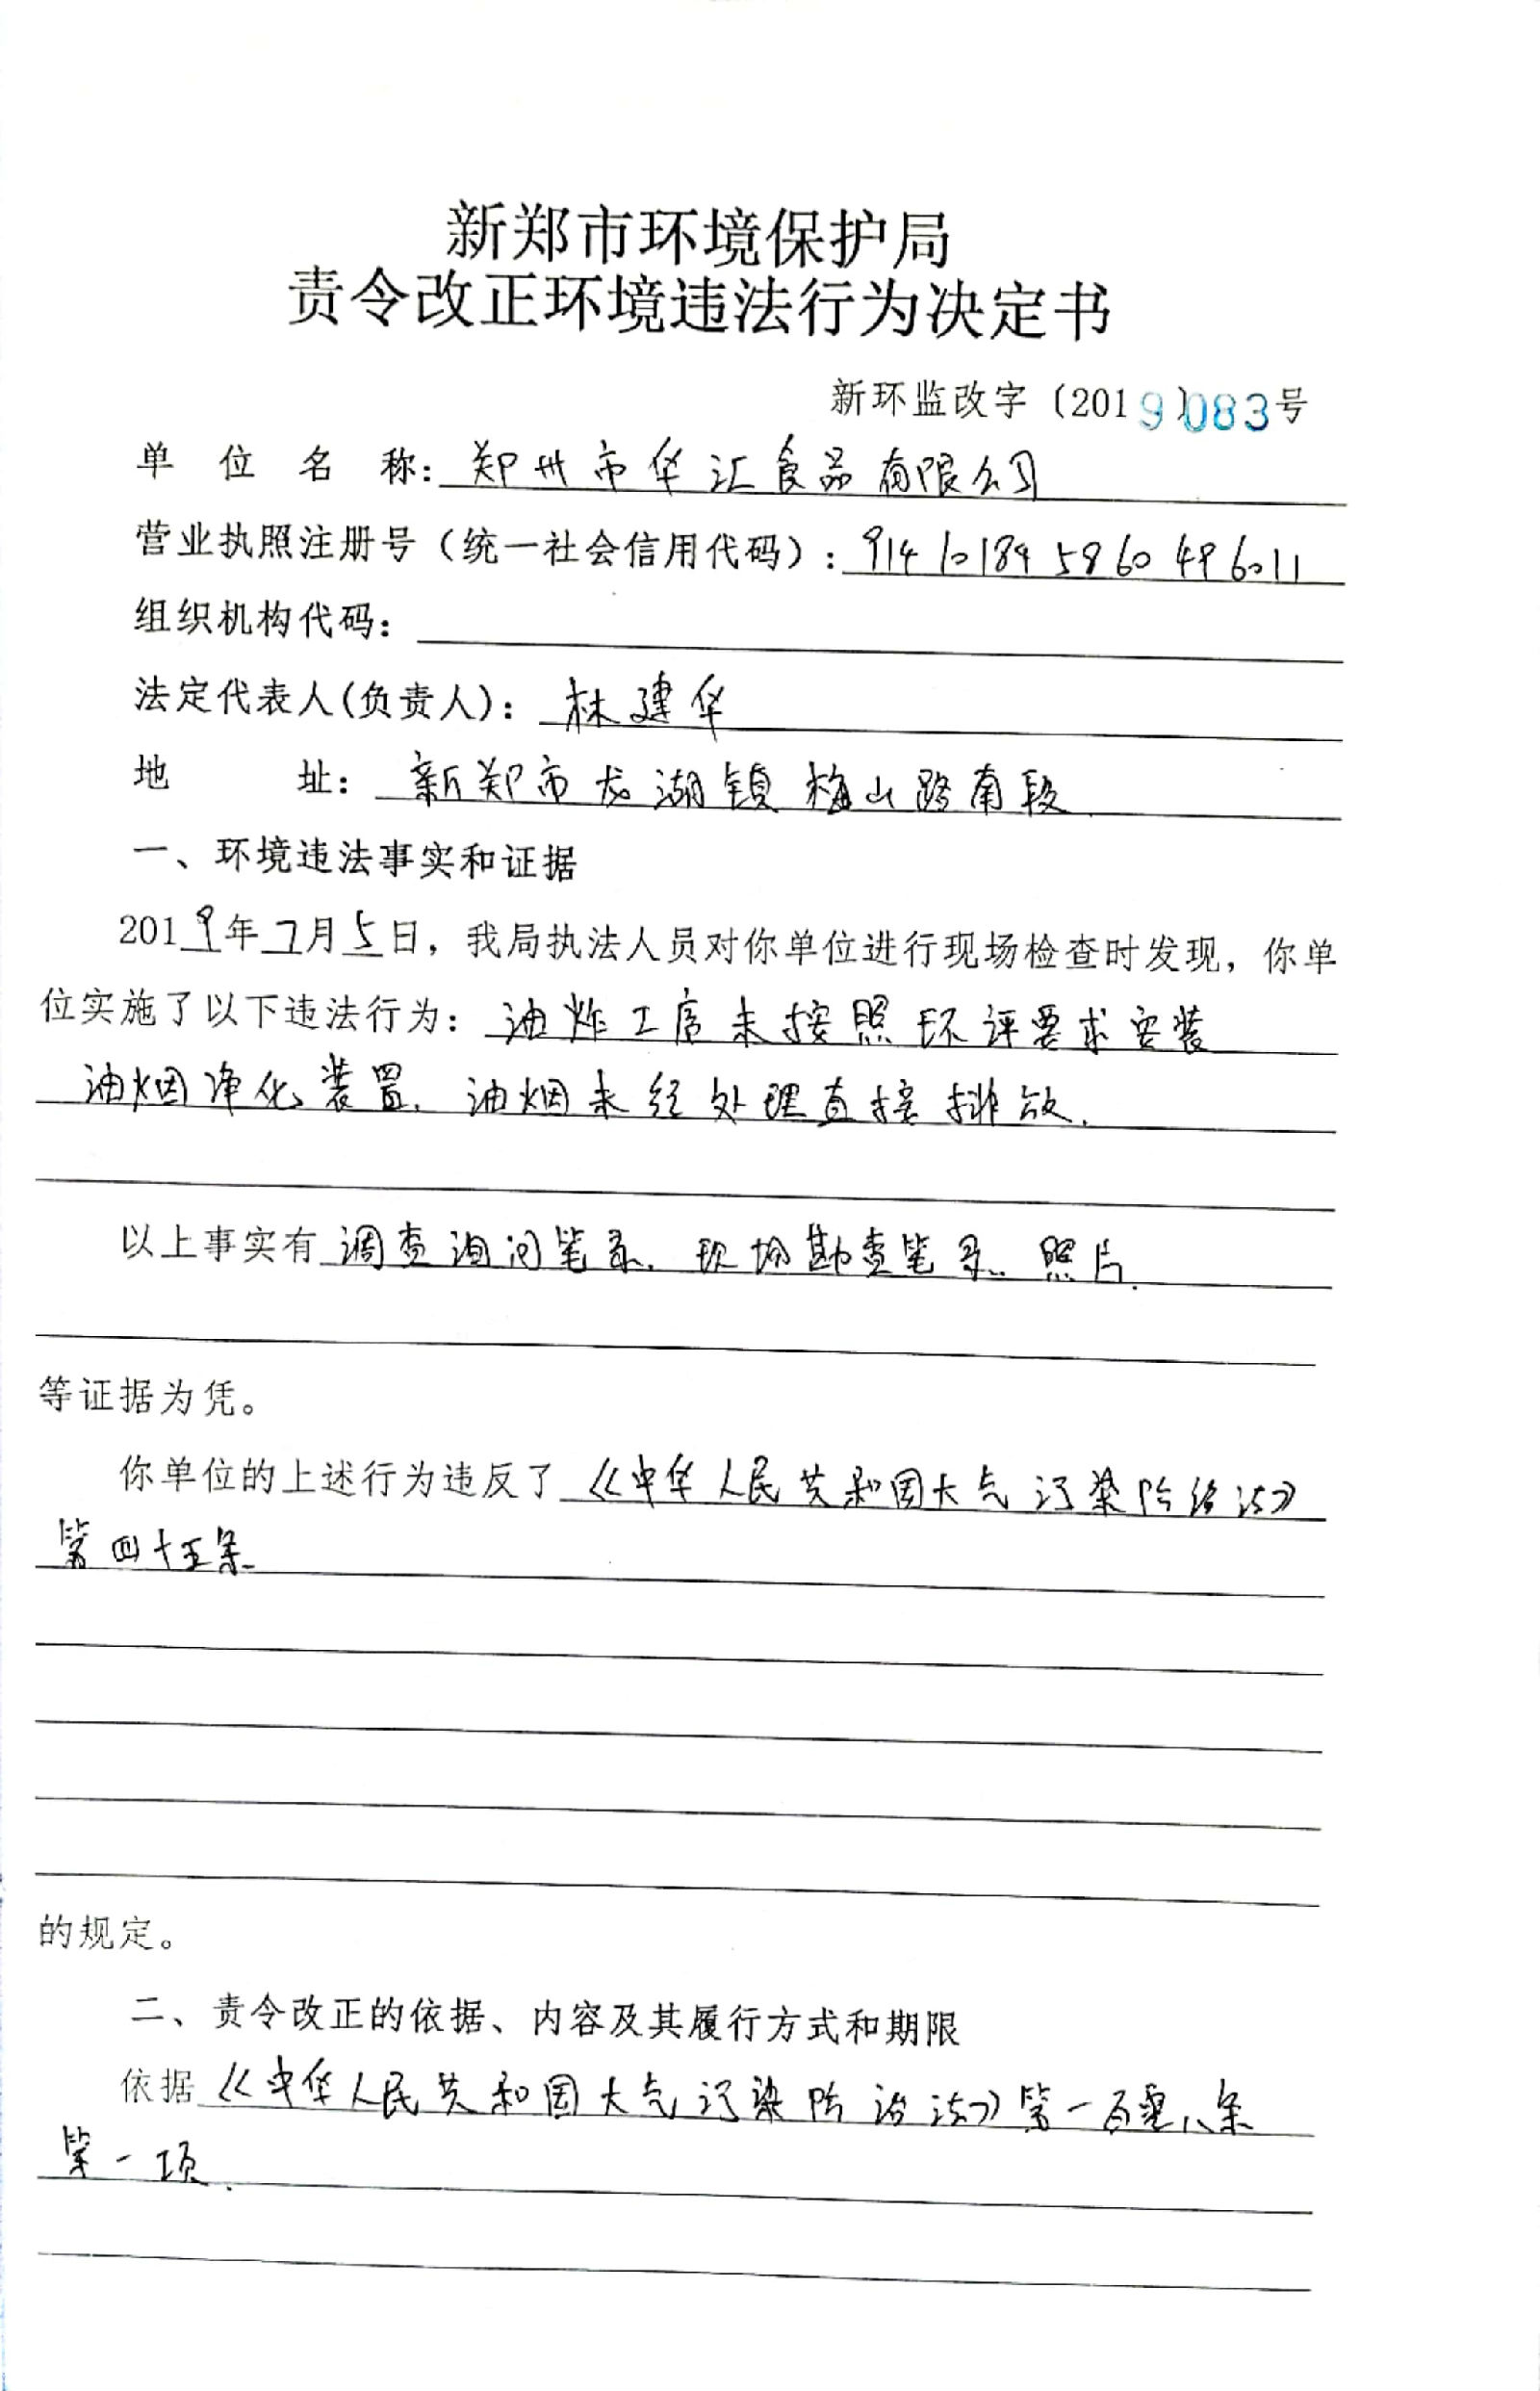 新郑市环境保护局
责令改正环境违法行为决定书
新环监改字〔2019〕083号
单位名称：郑州市华汇食品有限公司
营业执照注册号（统一社会信用代码）：914101845860496011
组织机构代码：
法定代表人(负责人)：林建华
地址：新郑市龙湖镇梅山路南段
一、环境违法事实和证据
2019年7月5日，我局执法人员对你单位进行现场检查时发现，你单
位实施了以下违法行为：油炸工序未按照环评要求安装
油烟净化装置，油烟未经处理直接排放.
以上事实有调查询问笔录、现场勘查笔录、照片.
等证据为凭。
你单位的上述行为违反了《中华人民共和国大气污染防治法》
第四十五条
的规定。
二、责令改正的依据、内容及其履行方式和期限
依据《中华人民共和国大气污染防治法》第一百零八条
第一项.